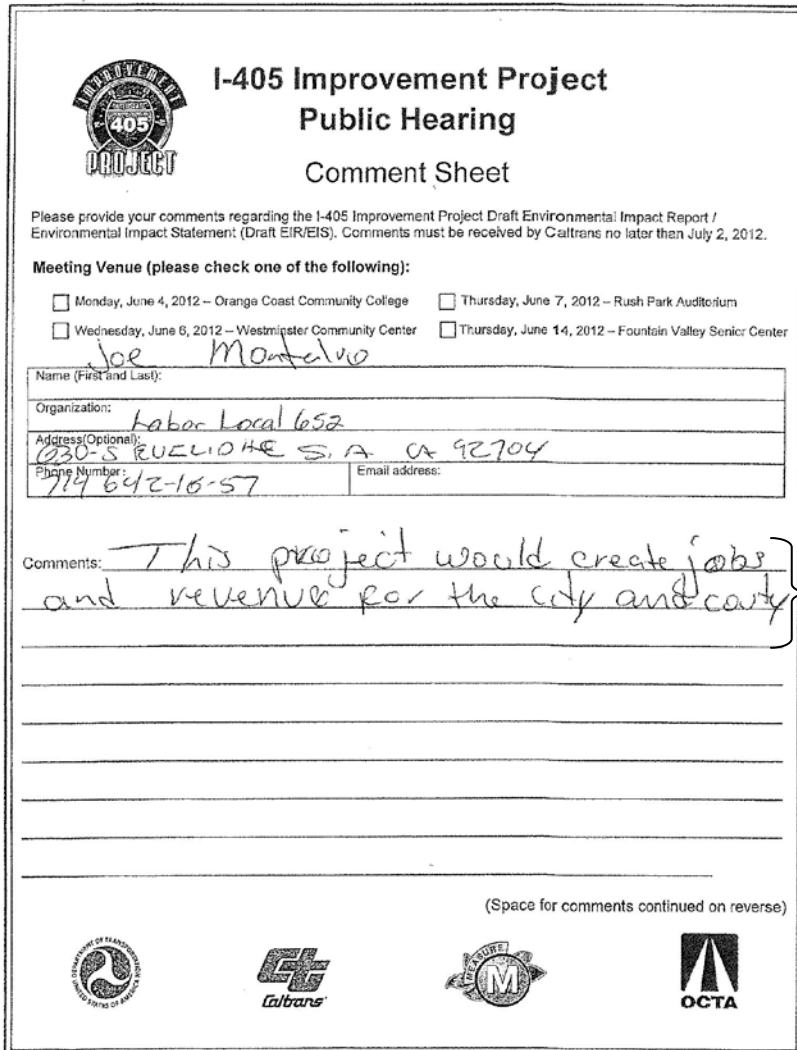 IMPROVEMENT
405
PROJECT
I-405 Improvement Project
Public Hearing
Comment Sheet
Please provide your comments regarding the I-405 Improvement Project Draft Environmental Impact Report /
Environmental Impact Statement (Draft EIR/EIS). Comments must be received by Caltrans no later than July 2, 2012.
Meeting Venue (please check one of the following):
Monday, June 4, 2012 – Orange Coast Community College
Thursday, June 7, 2012 – Rush Park Auditorium
Wednesday, June 6, 2012 – Westminster Community Center
Thursday, June 14, 2012 – Fountain Valley Senior Center
Joe Montalvo
Name (First and Last):
Organization: Labor Local 652
Address(Optional): S. A. CA 92704
Phone Number: 714 642-16-57
Email address:
Comments: This project would create jobs
and revenue for the city and couty
(Space for comments continued on reverse)
DEPARTMENT OF TRANSPORTATION
UNITED STATES OF AMERICA
Caltrans
MEASURE
M
OCTA